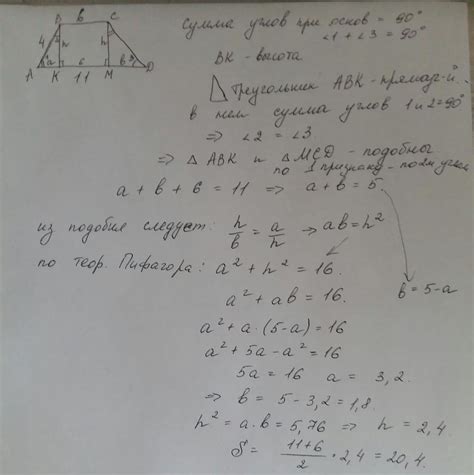 B 6 C
4 2 h h
A a K 6 M b 3 D
11
сумма углов при основ = 90°
∠1 + ∠3 = 90°
BK - высота
Треугольник ABK - прямоуг-й
в нем сумма углов 1 и 2 = 90°
⇒ ∠2 = ∠3
⇒ △ ABK и △ MCD - подобны
по 1 признаку - по 2м углам
a + b + 6 = 11 ⇒ a + b = 5.
из подобия следует: h/b = a/h ⇒ ab = h²
по теор. Пифагора: a² + h² = 16.
a² + ab = 16.
b = 5 - a
a² + a · (5-a) = 16
a² + 5a - a² = 16
5a = 16 a = 3,2.
⇒ b = 5 - 3,2 = 1,8.
h² = a·b = 5,76 ⇒ h = 2,4
S = (11+6)/2 · 2,4 = 20,4.